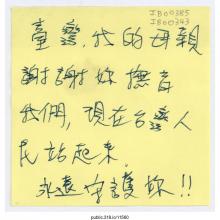 IB00385
IB00343
臺灣，我的母親
謝謝妳撫育
我們，現在台灣人
民站起來，
永遠守護妳!!
public.318.io/1580